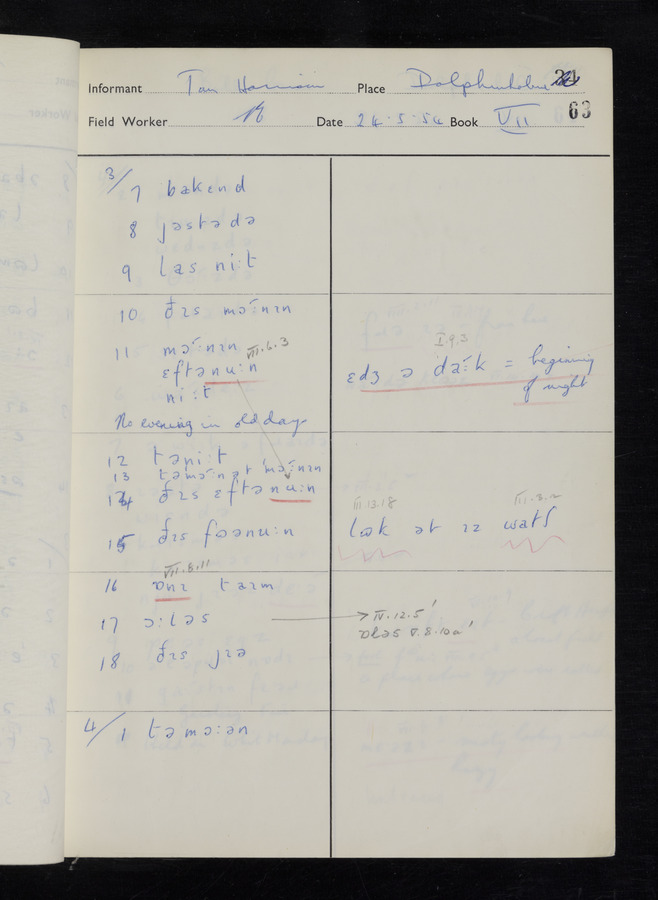 Informant Tom Harrison Place Dolphinholme 24
Field Worker Date 24.5.54 Book VII 63
3/7 bakɛnd
8 jəstədə
9 las niːt
10 ðɪs mɔːnɪn
11 mɔːnɪn VII.6.3
ɛftənuːn
niːt
No evening in old days
I.9.3
ɛdʒ ə daːk = beginning
of night
12 təniːt
13 təmɔːn ət mɔːnɪn
14 ðɪs ɛftənuːn
15 ðɪs fɔənuːn
III.13.18 VII.3.2
lʊk ət ɪz watʃ
16 VII.8.11
ɒnɪ taɪm
17 ɔːləs → IV.12.5'
ɒləs V.8.10a'
18 ðɪs jɪə
4/1 təmɔːən